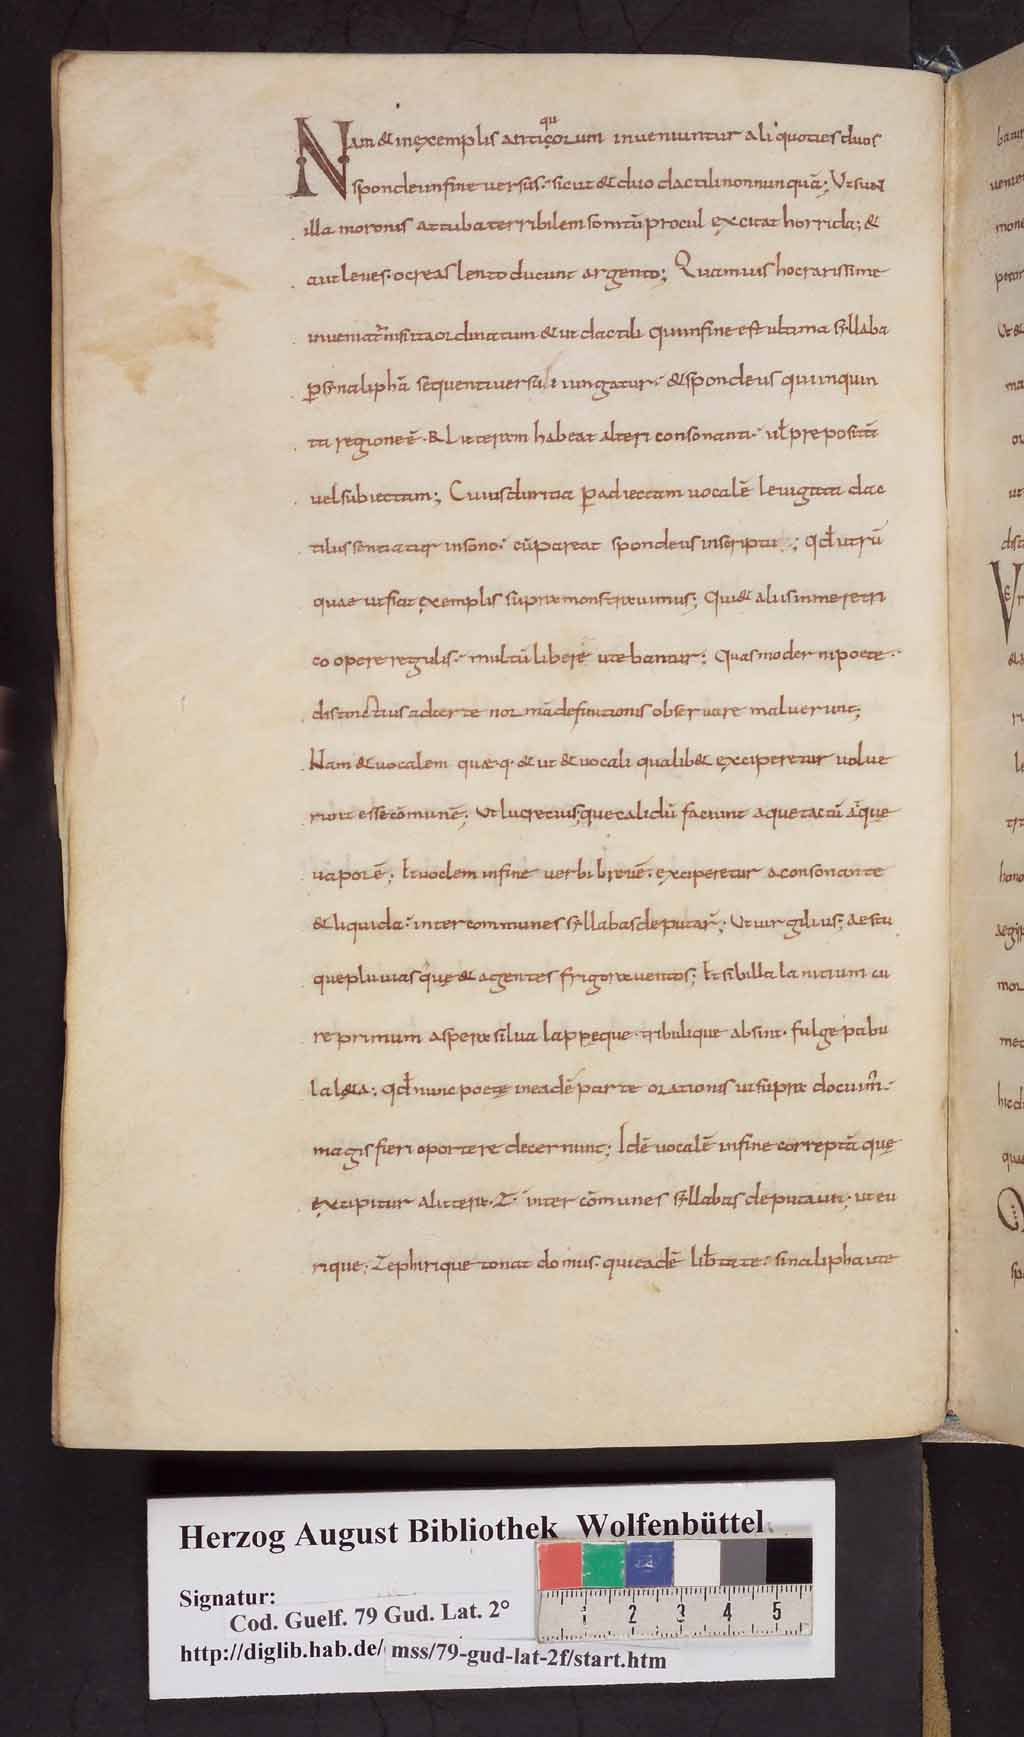 Nam & in exemplis antiꝗuorum inueniuntur aliquoties duos
spondei in fine uersus· sicut & duo dactili non nunquā; Ut sunt
illa moronis at tuba terribilem sonitū procul excitat horrida; &
aut leues· ocreas lento ducunt argento; Quamuis hoc rarissime
inueniat̄ nisi ita ordinatum & ut dactili qui in fine est ultima syllaba
ꝑ synaliphā sequenti uersui iungatur· & spondeus qui in quin
ta regione ē· R litteram habeat alteri consonanti· uł prepositā
uel subiectam; Cuius duritia ꝑ adiectam uocalē leuigata dac
tilus sentiatur in sono· cū pareat spondeus in scriptu; qđ utrū
quae ut fiat exemplis supra monstrauimus; Qui & aliis in metri
co opere regulis· multū libere utebantur; Quas moderni poete·
distinctius ad certe normā definitionis obseruare maluerunt;
Nam & uocalem quae·q· & ut & uocali qualib& exciperetur uolue
runt esse cōmunē; Ut lucretius; que calidū faciunt aque tactū atque
uaporē; & uo dem in fine uerbi breuē· exciperetur a consonante
& liquida· inter communes syllabas deputar̄; Ut uirgilius; aestu
que pluuias que & agentes frigora uentos; & si billa lanitium cu
re primum aspera silua lappęque· tribulique absint· fulge pabu
la l&a; qđ nunc poetę in eadē parte orationis ut supra docuim̄·
magis fieri oportere decernunt; Idē uocalē in fine correptā quę
excipitur a littera·Z· inter cōmunes syllabas deputaui; ut eu
rique; Zephirique tonat domus· qui eadē lib̄tate· sinalipha ute
Herzog August Bibliothek Wolfenbüttel
Signatur:
Cod. Guelf. 79 Gud. Lat. 2°
http://diglib.hab.de/ mss/79-gud-lat-2f/start.htm
1 2 3 4 5